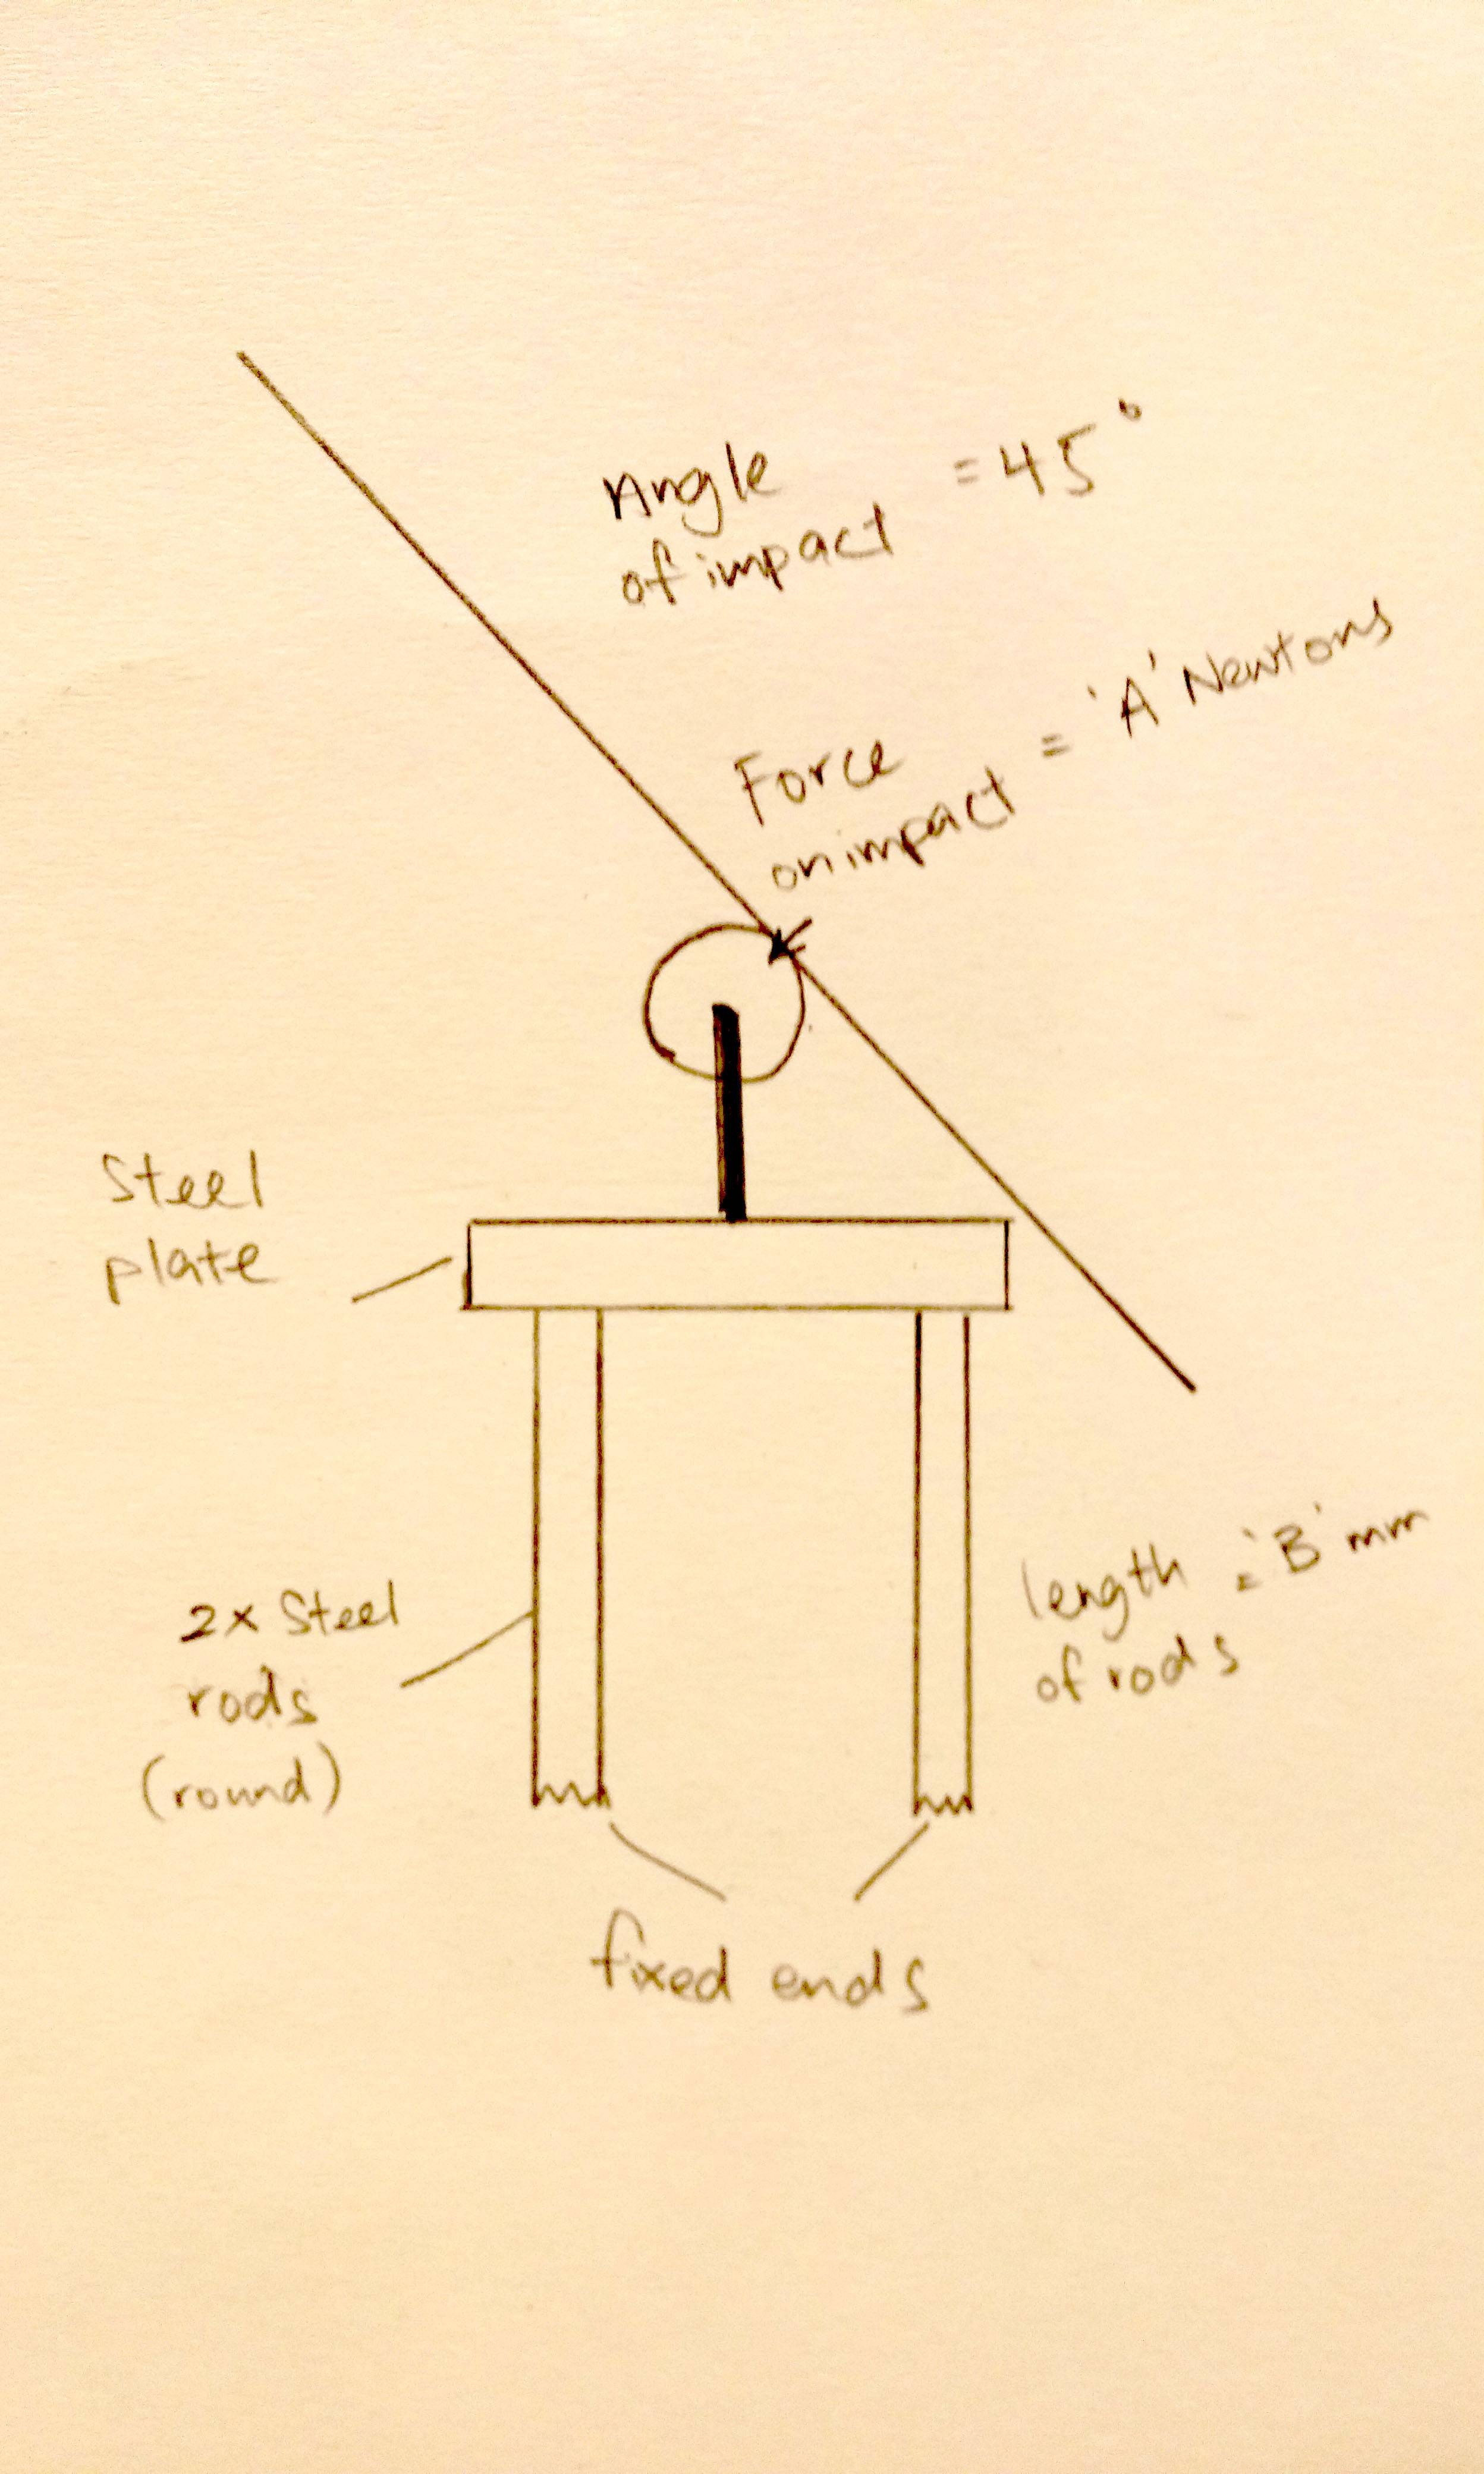 Angle = 45°
of impact
Force
on impact = 'A' Newtons
Steel
plate
2x Steel
rods
(round)
length = 'B' mm
of rods
fixed ends